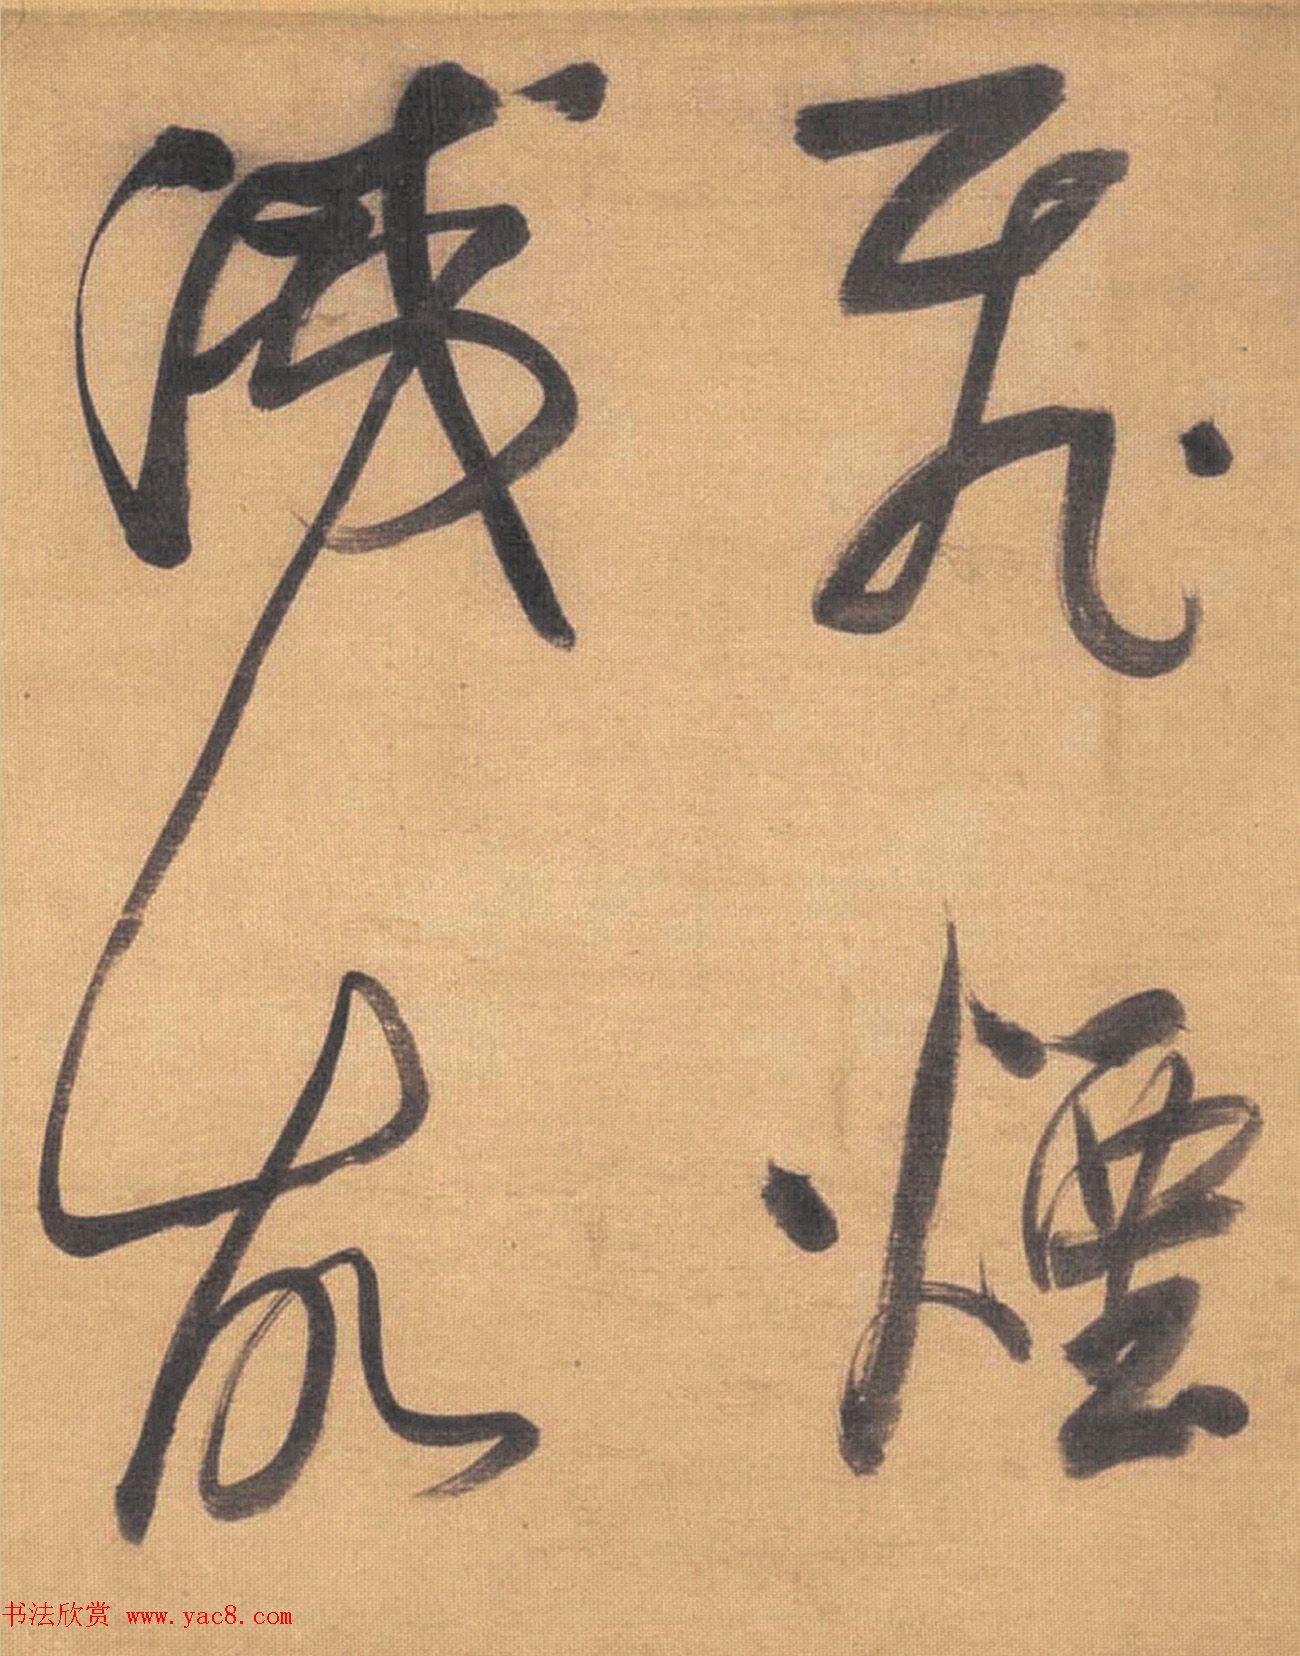 飛煙
滅故
书法欣赏 www.yac8.com